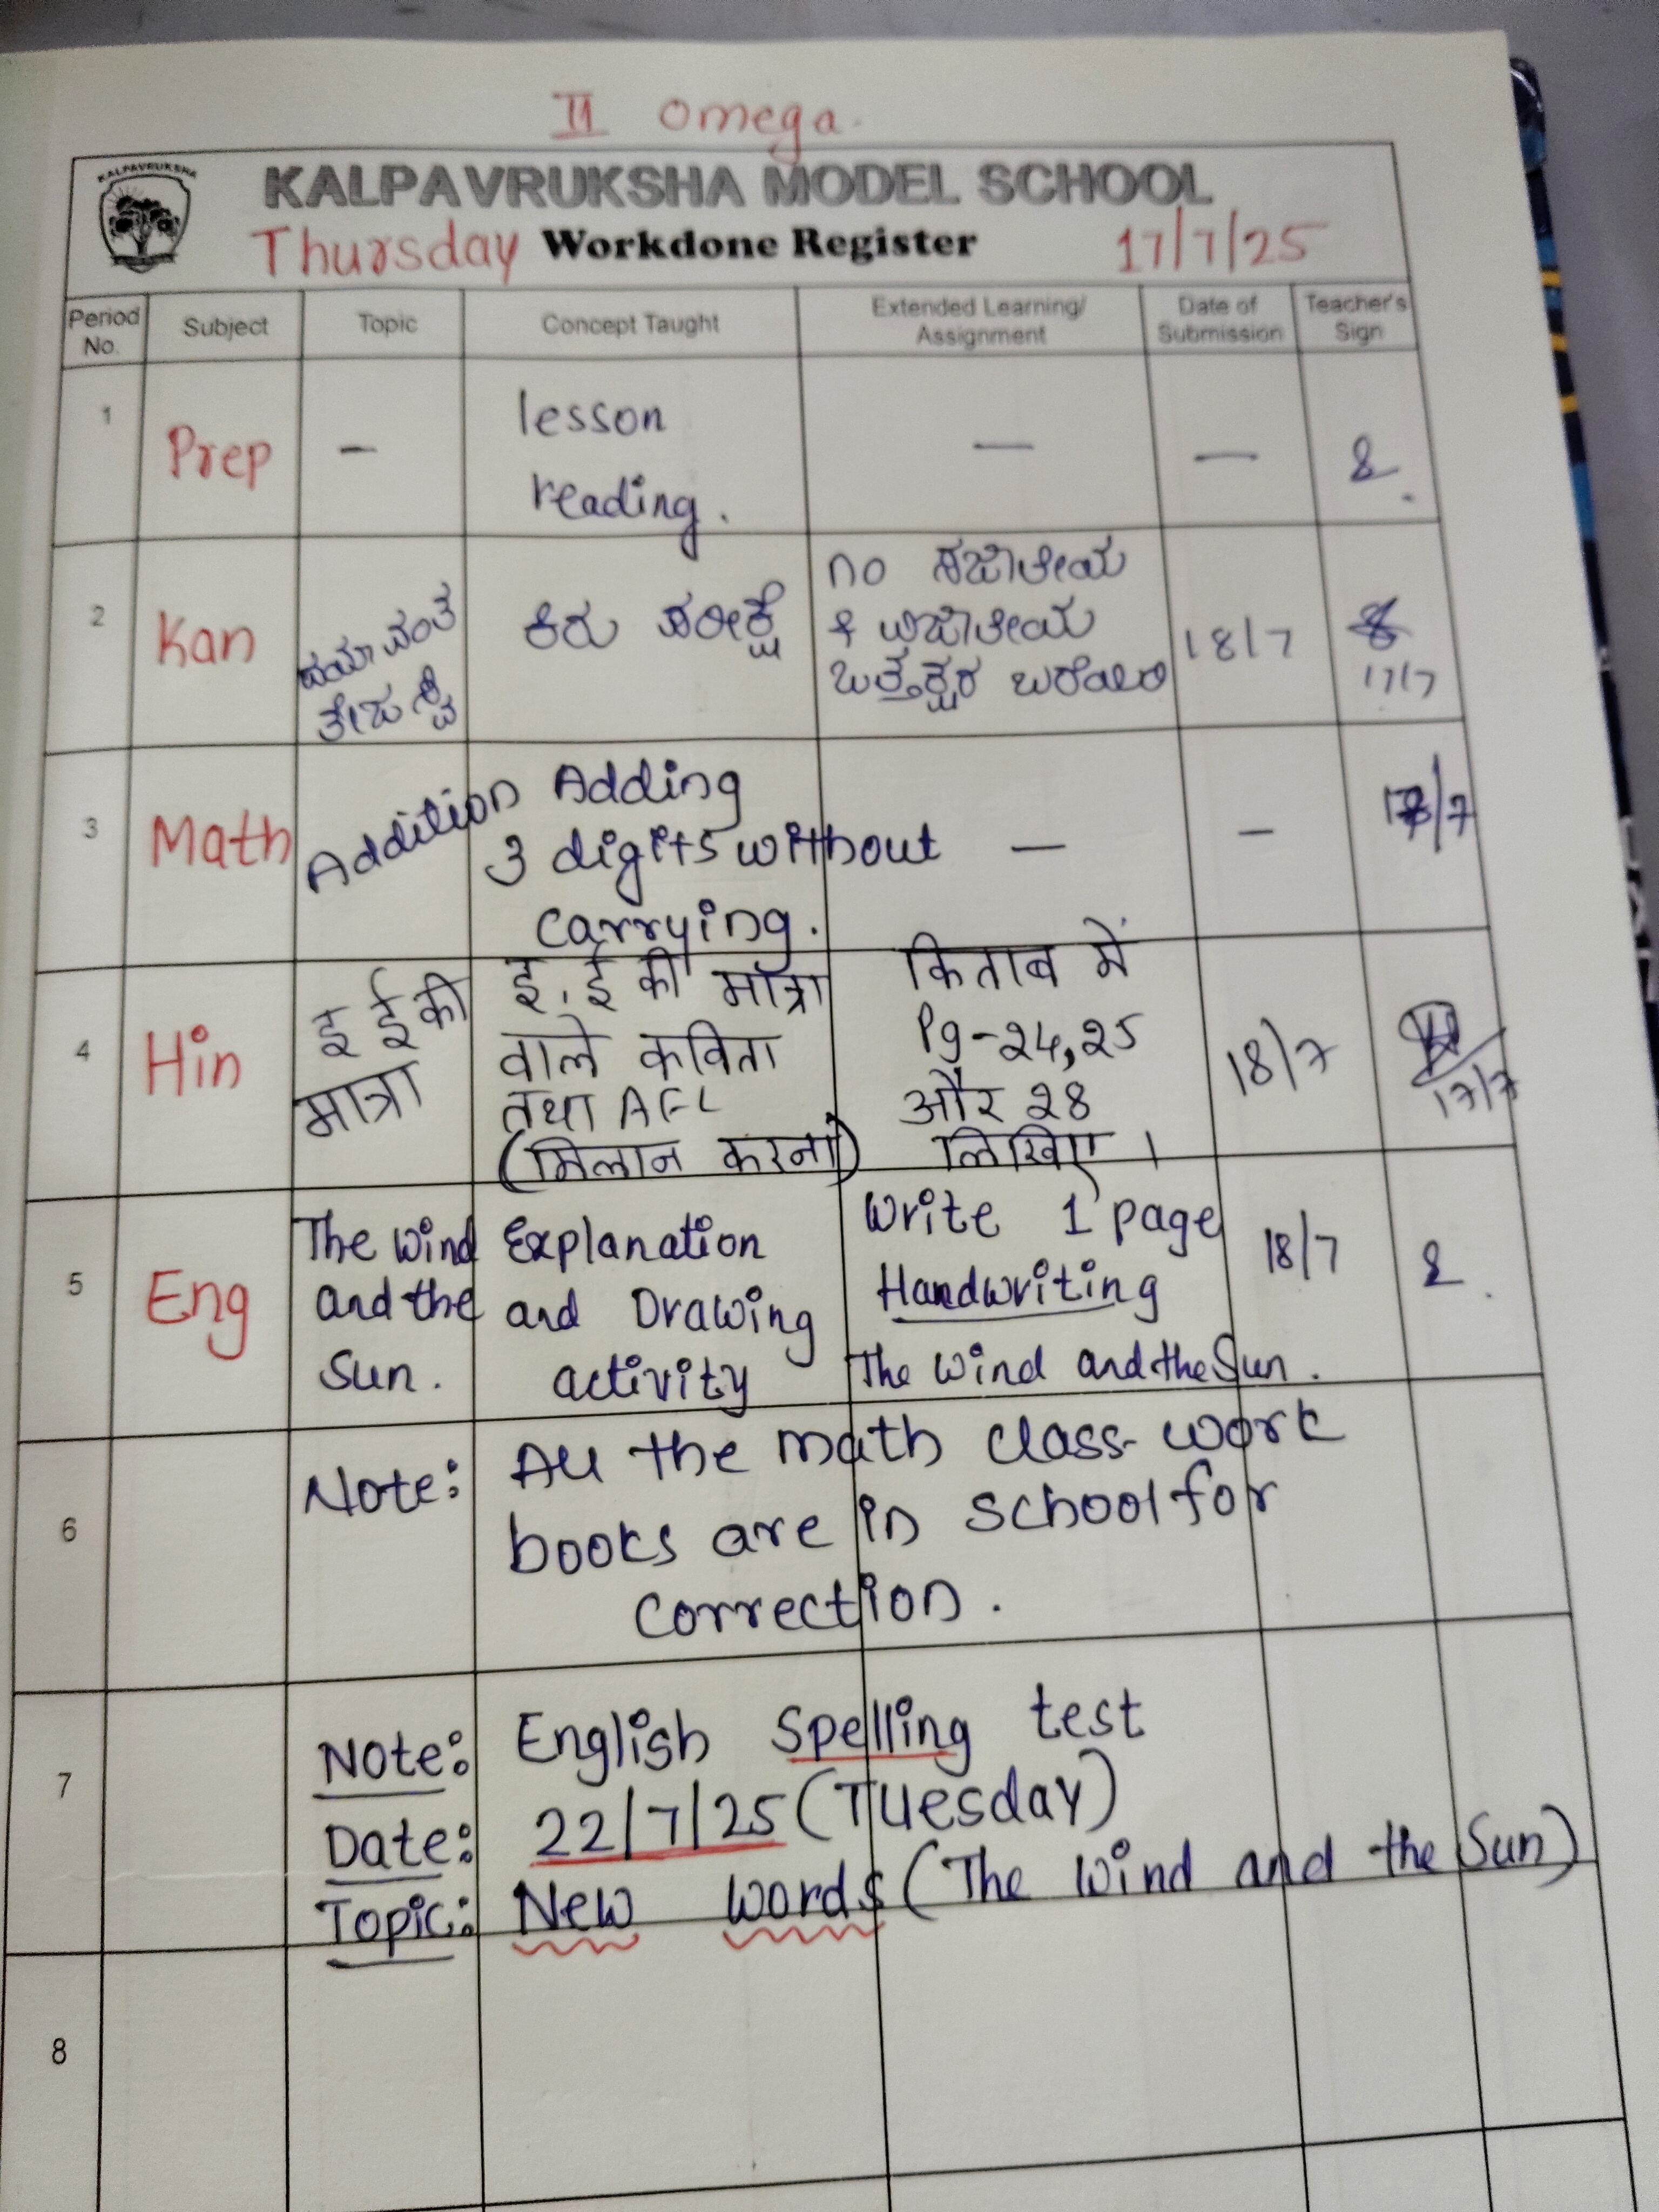 II Omega.
KALPAVRUKSHA
KALPAVRUKSHA MODEL SCHOOL
Thursday Workdone Register 17/7/25
Period No. Subject Topic Concept Taught Extended Learning/ Assignment Date of Submission Teacher's Sign
1 Prep - lesson — —
reading.
2 Kan ಕಿರು ಪರೀಕ್ಷೆ no ಸಜಾತೀಯ
& ವಿಜಾತೀಯ 18/7
ಒತ್ತಕ್ಷರ ಬರೆಯಿರಿ 17/7
3 Math Addition Adding
3 digits without — —
carrying.
4 Hin इ ई की इ, ई की मात्रा किताब में
मात्रा वाले कविता Pg-24,25 18/7
तथा AFL और 28 17/7
(मिलान करना) लिखिए।
5 Eng The wind Explanation Write 1 page 18/7
and the and Drawing Handwriting
Sun. activity The wind and the Sun.
6 Note: All the math class-work
books are in school for
correction.
7 Note: English Spelling test
Date: 22/7/25 (Tuesday)
Topic: New words (The wind and the Sun)
8